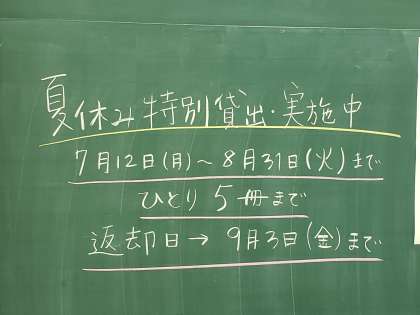 夏休み特別貸出・実施中
7月12日(月)～8月31日(火)まで
ひとり 5冊まで
返却日→9月3日(金)まで